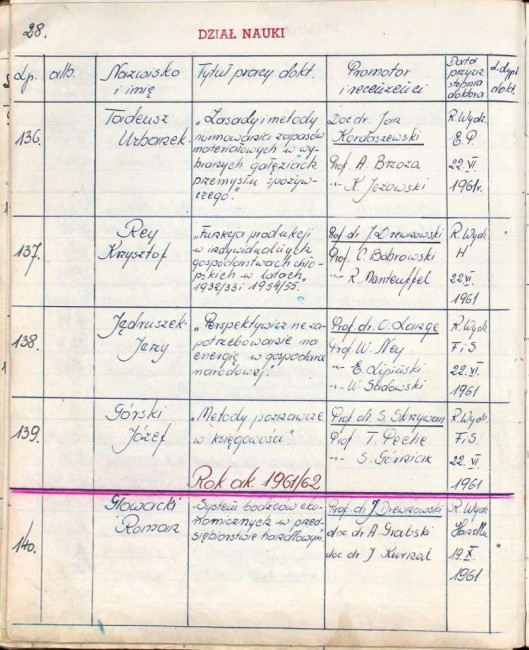 28.
DZIAŁ NAUKI
Lp. alb. Nazwisko i imię Tytuł pracy dokt. Promotor i recenzenci Data przyzn. stopnia doktora dokt.
136. Tadeusz Urbanek
„Zasady i metody
normowania zapasów
materiałowych w wy-
branych gałęziach
przemysłu spożyw-
czego."
Doc dr Jan
Kordaszewski
Prof. A. Brzoza
-"- K. Jeżowski
R. Wydz.
E.P.
22.VI
1961r.
137. Rey
Krzysztof
„Funkcja produkcji
w indywidualnych
gospodarstwach chło-
pskich w latach
1932/33 i 1954/55."
Prof. dr J. Drewnowski
Prof. C. Bobrowski
-"- R. Manteuffel
R. Wydz.
H
22.VI.
1961
138. Jędruszek
Jerzy
„Perspektywiczne za-
potrzebowanie na
energię w gospodarce
narodowej."
Prof. dr. O. Lange
Prof. W. Ney
-"- E. Lipiński
-"- W. Sadowski
R. Wydz.
F i S
22.VI.
1961
139. Górski
Józef
„Metody poznawcze
w księgowości."
Prof. dr. S. Skrzywan
Prof. T. Peche
-"- S. Góźniak
R. Wydz.
F i S.
22.VI.
1961
Rok ak. 1961/62.
140. Głowacki
Roman
„System bodźców eko-
nomicznych w przed-
siębiorstwie handlowym"
Prof. dr J. Drewnowski
doc dr A. Grabski
doc dr J. Kurnal
R. Wydz.
Handlu
19.X
1961